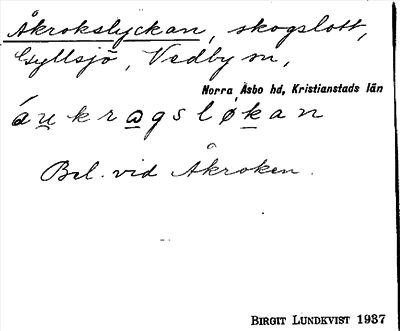 Åkrokslyckan, skogslott,
Gyllsjö, Vedby sn,
Norra Åsbo hd, Kristianstads län
áu̲kra̲gsløk̲an
Bel. vid Åkroken.
BIRGIT LUNDKVIST 1937